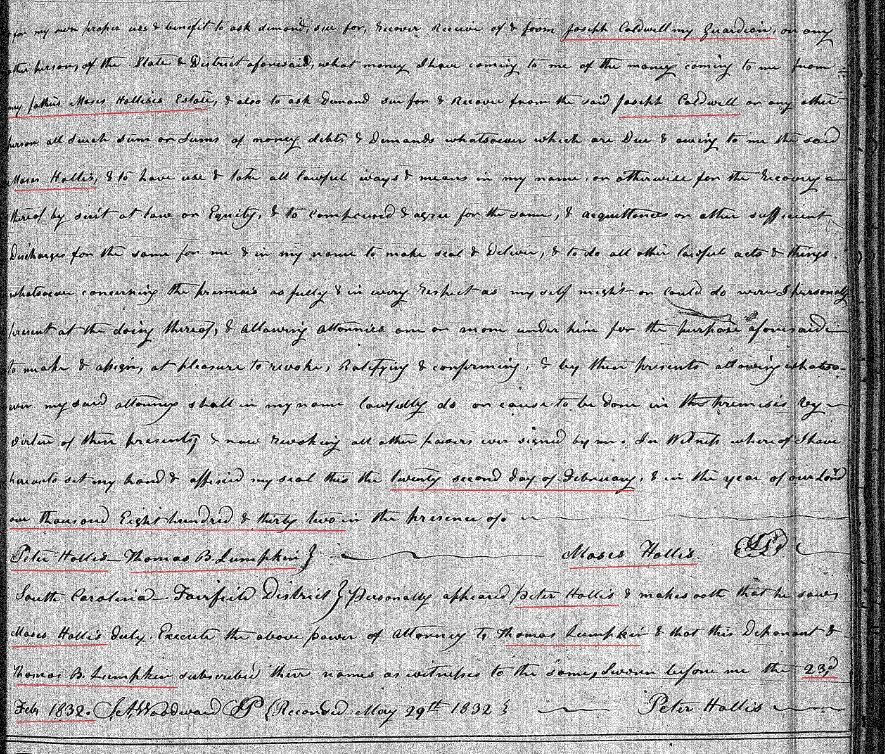 for my own proper use & benefit to ask demand, sue for, & recover Receive of & from Joseph Caldwell my Guardian, or any
other person, of the State & District aforesaid, what money I have coming to me of the money coming to me from
my fathers Moses Hollis's Estate, & also to ask demand sue for & Recover from the said Joseph Caldwell or any other
person all such sum or sums of money debts & Demands whatsoever which are Due & owing to me the said
Moses Hollis, & to have use & take all lawful ways & means in my name, or otherwise for the recovery
thereof by suit at law or Equity, & to compound & agree for the same, & acquittances or other sufficient
Discharges for the same for me & in my name to make seal & Deliver, & to do all other lawful acts & things
whatsoever concerning the premises as fully & in every respect as my self might or could do were I personally
present at the doing thereof, & allowing attornies one or more under him for the purpose aforesaid
to make & again, at pleasure to revoke, Ratifying & confirming, & by these presents allowing whatso-
ever my said attorney shall in my name lawfully do or cause to be done in the premises by
virtue of these presents & now revoking all other powers ever signed by me. In Witness whereof I have
hereunto set my hand & affixed my seal this the twenty second day of February, & in the year of our Lord
one thousand Eight hundred & thirty two in the presence of
Peter Hollis Thomas B. Lumpkin } Moses Hollis LS
South Carolina Fairfield District } Personally appeared Peter Hollis & makes oath that he saw
Moses Hollis duly Execute the above power of attorney to Thomas Lumpkin & that this Deponant &
Thomas B. Lumpkin subscribed their names as witnesses to the same, Sworn before me the 23d
Feb 1832. Woodward JP (Recorded May 29th 1832 } Peter Hollis